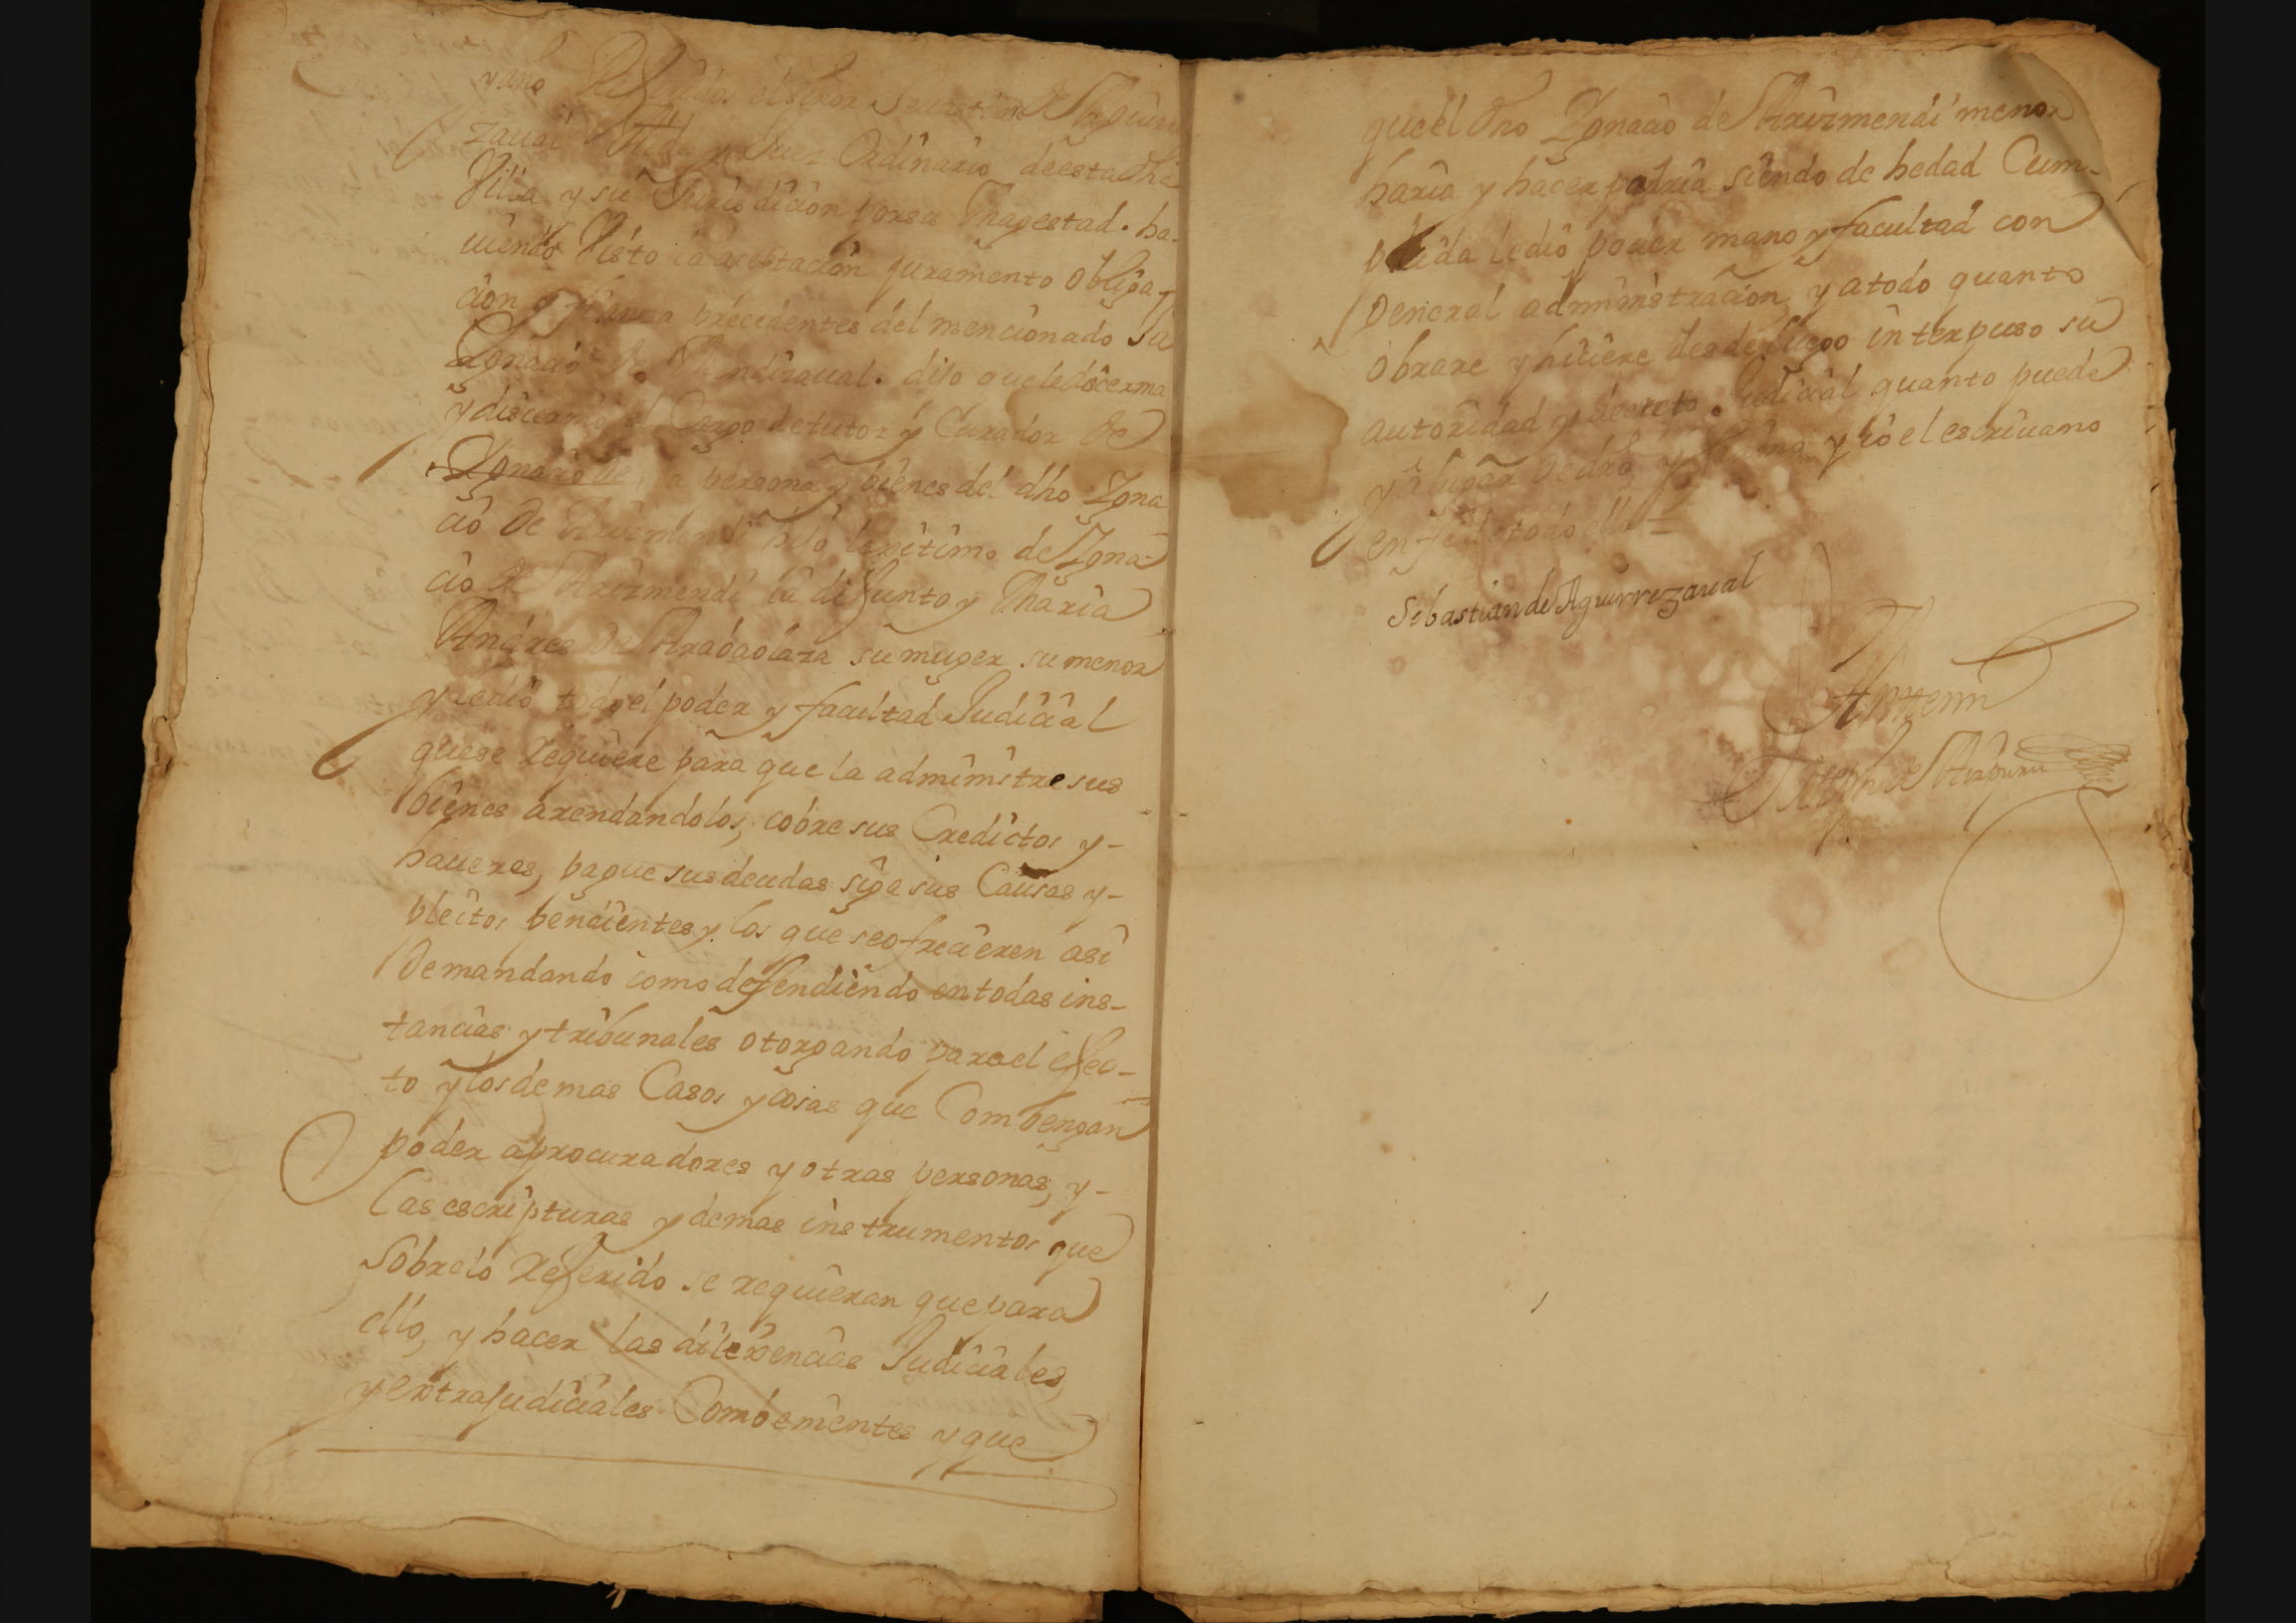 y año Referidos el señor Sevastian de Aguirre
zaual Alcalde y Juez Ordinario de esta dha
Villa y su Jurisdicion por su Magestad. ha-
uiendo Visto la aceptacion juramento obliga-
cion y fianza precedentes del mencionado Ju
Ignacio de Mendizaual. dijo que le discerma
y discernio el Cargo de tutor y Curador de
Ignacio de la persona y bienes del dho Igna
cio de Arizmendi hijo lexitimo de Igna-
cio de Arizmendi ia difunto y Maria
Andres de Arabaolaza su muger su menor
y le dio todo el poder y facultad Judicial
que se Requiere para que la administre sus
bienes arendandolos, cobre sus Credictos y-
haueres, pague sus deudas siga sus Causas y-
pleitos pendientes y los que se ofrecieren asi
Demandando como defendiendo en todas ins-
tancias y tribunales otorgando para el efec-
to y los demas Casos y cosas que Combengan
poder a procuradores y otras personas, y-
las escripturas y demas instrumentos que
sobre lo Referido se requieran que para
ello, y hacer las dilexencias Judiciales,
y extrajudiciales Combenientes y que
que el dho Ignacio de Arizmendi menor
haria y hacer podria siendo de hedad Cum-
plida le dio poder mano y facultad con
General administracion, y a todo quanto
obrare y hiciere desde luego interpuso su
autoridad y decreto Judicial quanto puede
y a lugar de dro y firmo y io el escriuano
en fe de todo ello=
Sebastian de Aguirrezaual
Ante mi
Joseph de Aizpuru